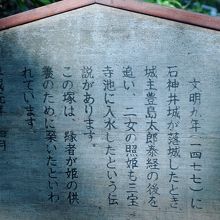 文明九年(一四七七)に
石神井城が落城したとき、
城主豊島太郎泰経の後を
追い、二女の照姫も三宝
寺池に入水したという伝
説があります。
この塚は、縁者が姫の供
養のために築いたといわ
れています。